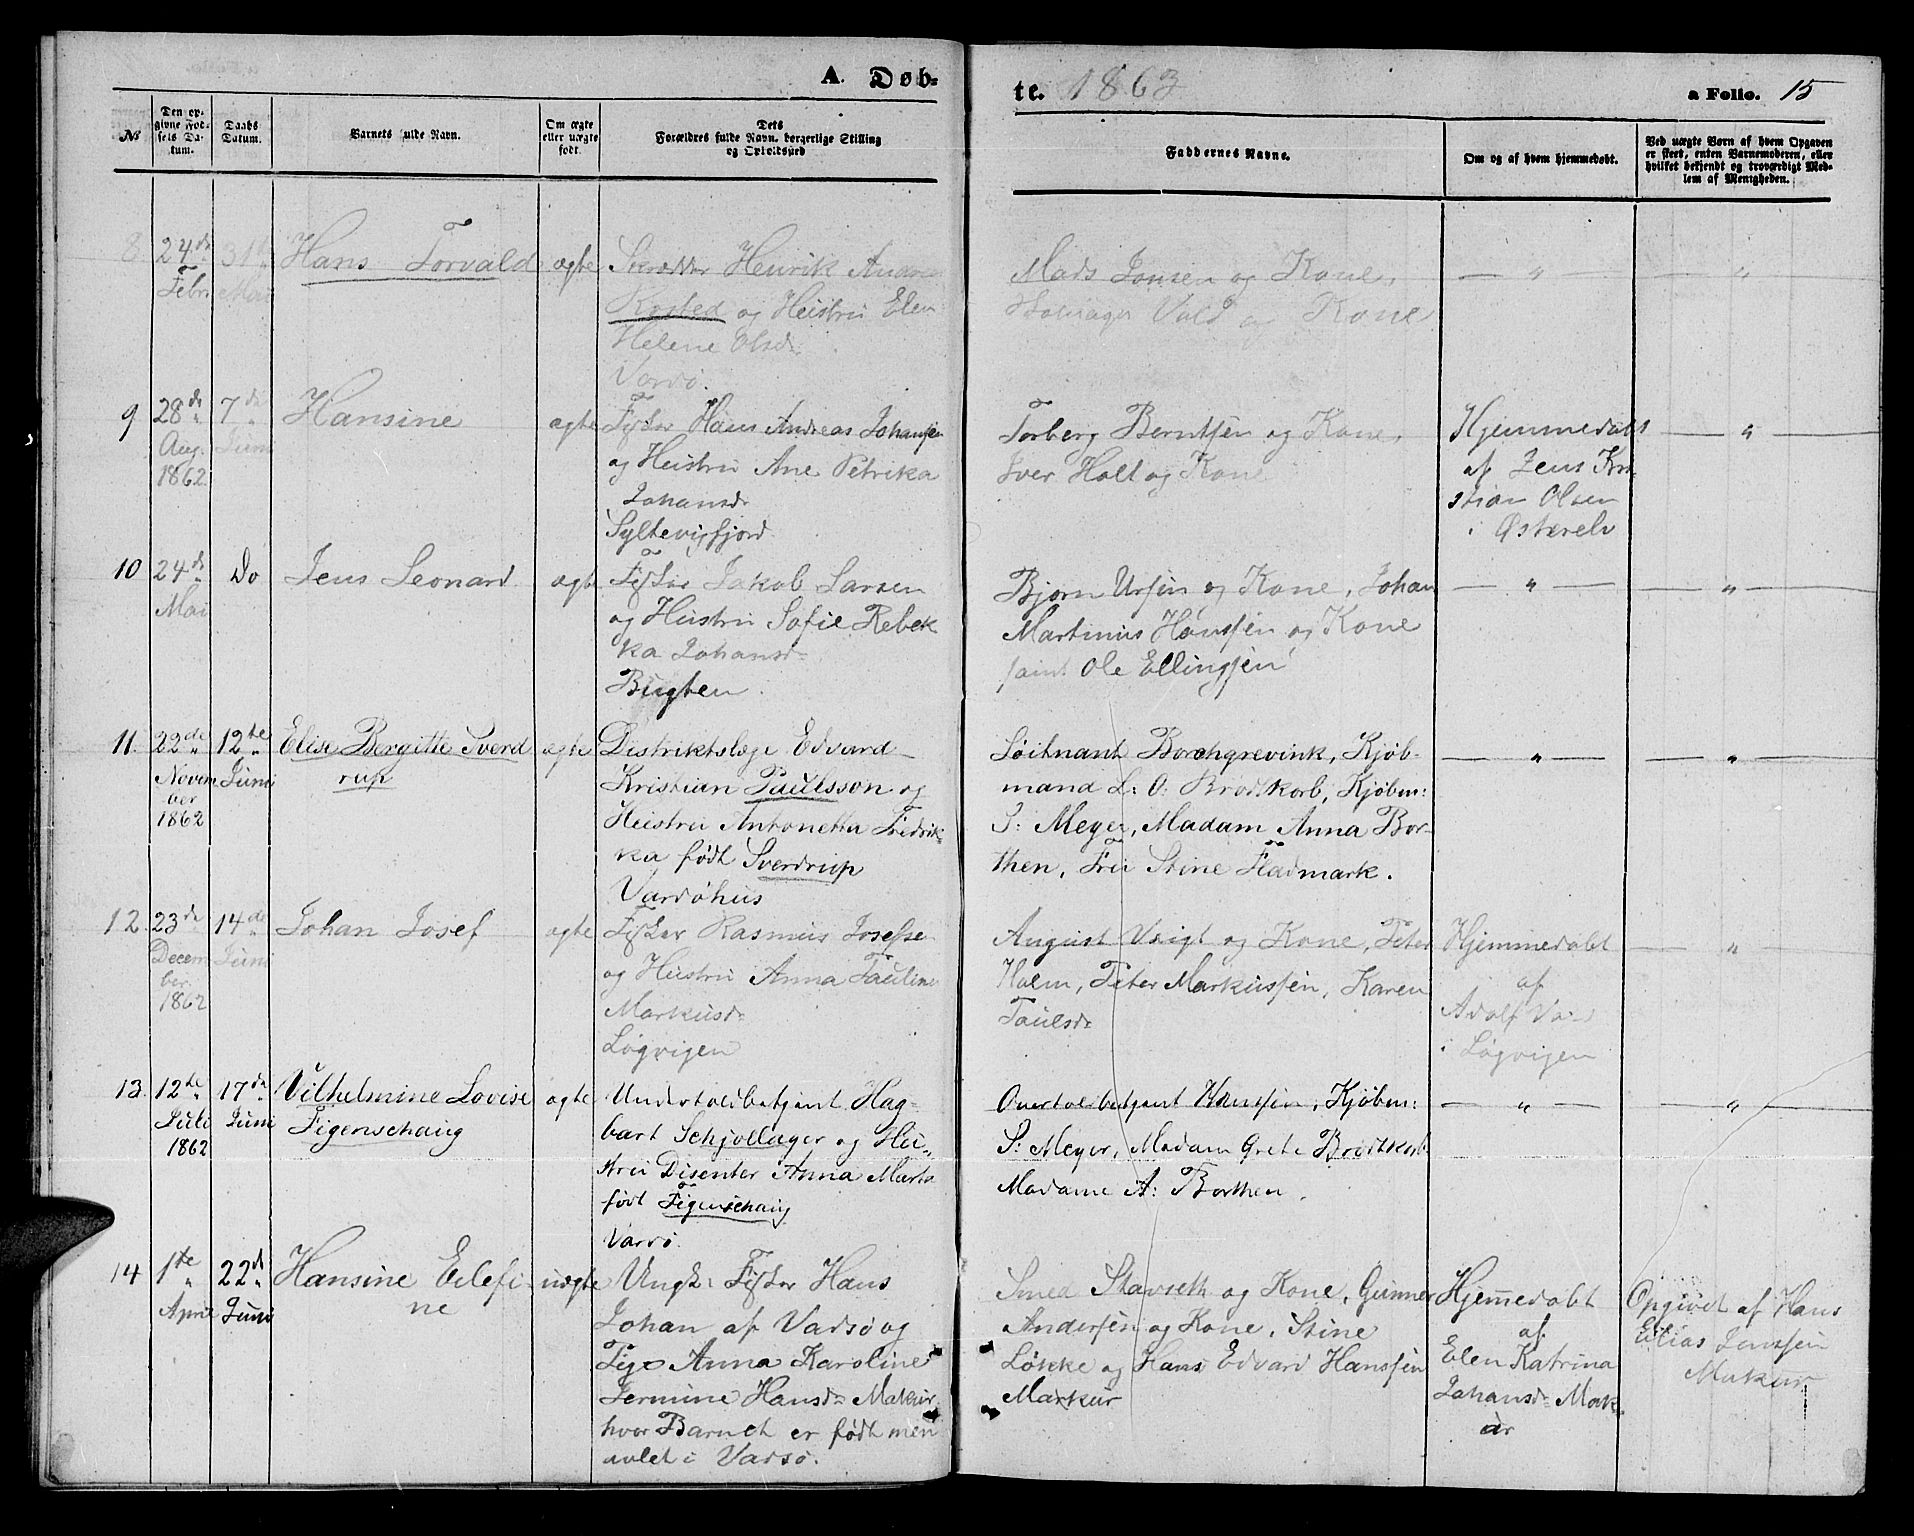 A. Døb-
te. 1863
a Folio. 15
№
Den op-
givne Fød-
sels Da-
tum.
Daabs
Datum.
Barnets fulde Navn.
Om ægte
eller uægte
født.
Dets
Forældres fulde Navn, borgerlige Stilling
og Opholdssted
Faddernes Navne.
Om og af hvem hjemmedøbt.
Ved uægte Børn af hvem Opgaven
er skeet, enten Barnemoderen, eller
hvilket bekjendt og troværdigt Med-
lem af Menigheden.
8.
24de
Febr.
31te
Mai
Hans Torvald
ægte
Skrædder Henrik Andrea
og Hustru Elen
Helene Olsdr
Vardø.
Mads Jonsen og Kone,
Vold og Kone
— " —
— " —
9
28de
Aug.
1862
7de
Juni
Hansine
ægte
Fisker Hans Andreas Johansen
og Hustru Ane Petrika
Johansdr
Syltevigfjord
Torberg Berntsen og Kone,
Iver Holt og Kone
Hjemmedøbt
af Jens Kri
stian Olsen
i Østerelv
— " —
10
24de
Mai
Do
Jens Leonard
ægte
Fisker Jakob Larsen
og Hustru Sofie Rebek
ka Johansdr
Bugten.
Bjørn Ursin og Kone, Johan
Martinus Hanssen og Kone
samt Ole Ellingsen
— " —
— " —
11.
22de
Novem
ber
1862
12te
Juni
Elise Bergitte Sverd
rup
ægte
Distriktslæge Edvard
Kristian Paulsson og
Hustru Antonetta Fredrik-
ka født Sverdrup
Vardøhus
Løitnant Borchgrevink, Kjøb-
mand L: O: Brodtkorb, Kjøbm:
S: Meyer, Madam Anna Bor-
then, Fru Stine Fladmark.
— " —
— " —
12.
23de
Decem
ber
1862
14de
Juni
Johan Josef
ægte
Fisker Rasmus Josefse
og Hustru Anna Pauline
Markusdr
Løgvigen
August Voigt og Kone, Peter
Holm, Peter Markussen, Karen
Paulsdr
Hjemmedøbt
af
Adolf
i Løgvigen
— " —
13.
12te
Juli
1862
17de
Juni
Vilhelmine Lovise
Figenschaug
ægte
Undertoldbetjent Hag-
bart Schjøllager og Hu-
stru Disenter Anna Marth
født Figenschaug
Vardø.
Overtoldbetjent Hanssen, Kjøbm:
S: Meyer, Madam Grete Brodtkorb
Madame A: Borthen.
— " —
— " —
14
1te
April
22de
Juni
Hansine Elefi-
ne
uægte
Ungk: Fisker Hans
Johan af Vadsø og
Pige Anna Karoline
Jermine Hansdr Makur
hvor Barnet er født men
avlet i Vadsø.
Smed Stavseth og Kone, Gunner
Andersen og Kone, Stine
Løkke og Hans Edvard Hanssen
Markur
Hjemmedøbt
af
Elen Katrina
Johansdr Mak-
ur
Opgivet af Hans
Elias Jenssen
Makur